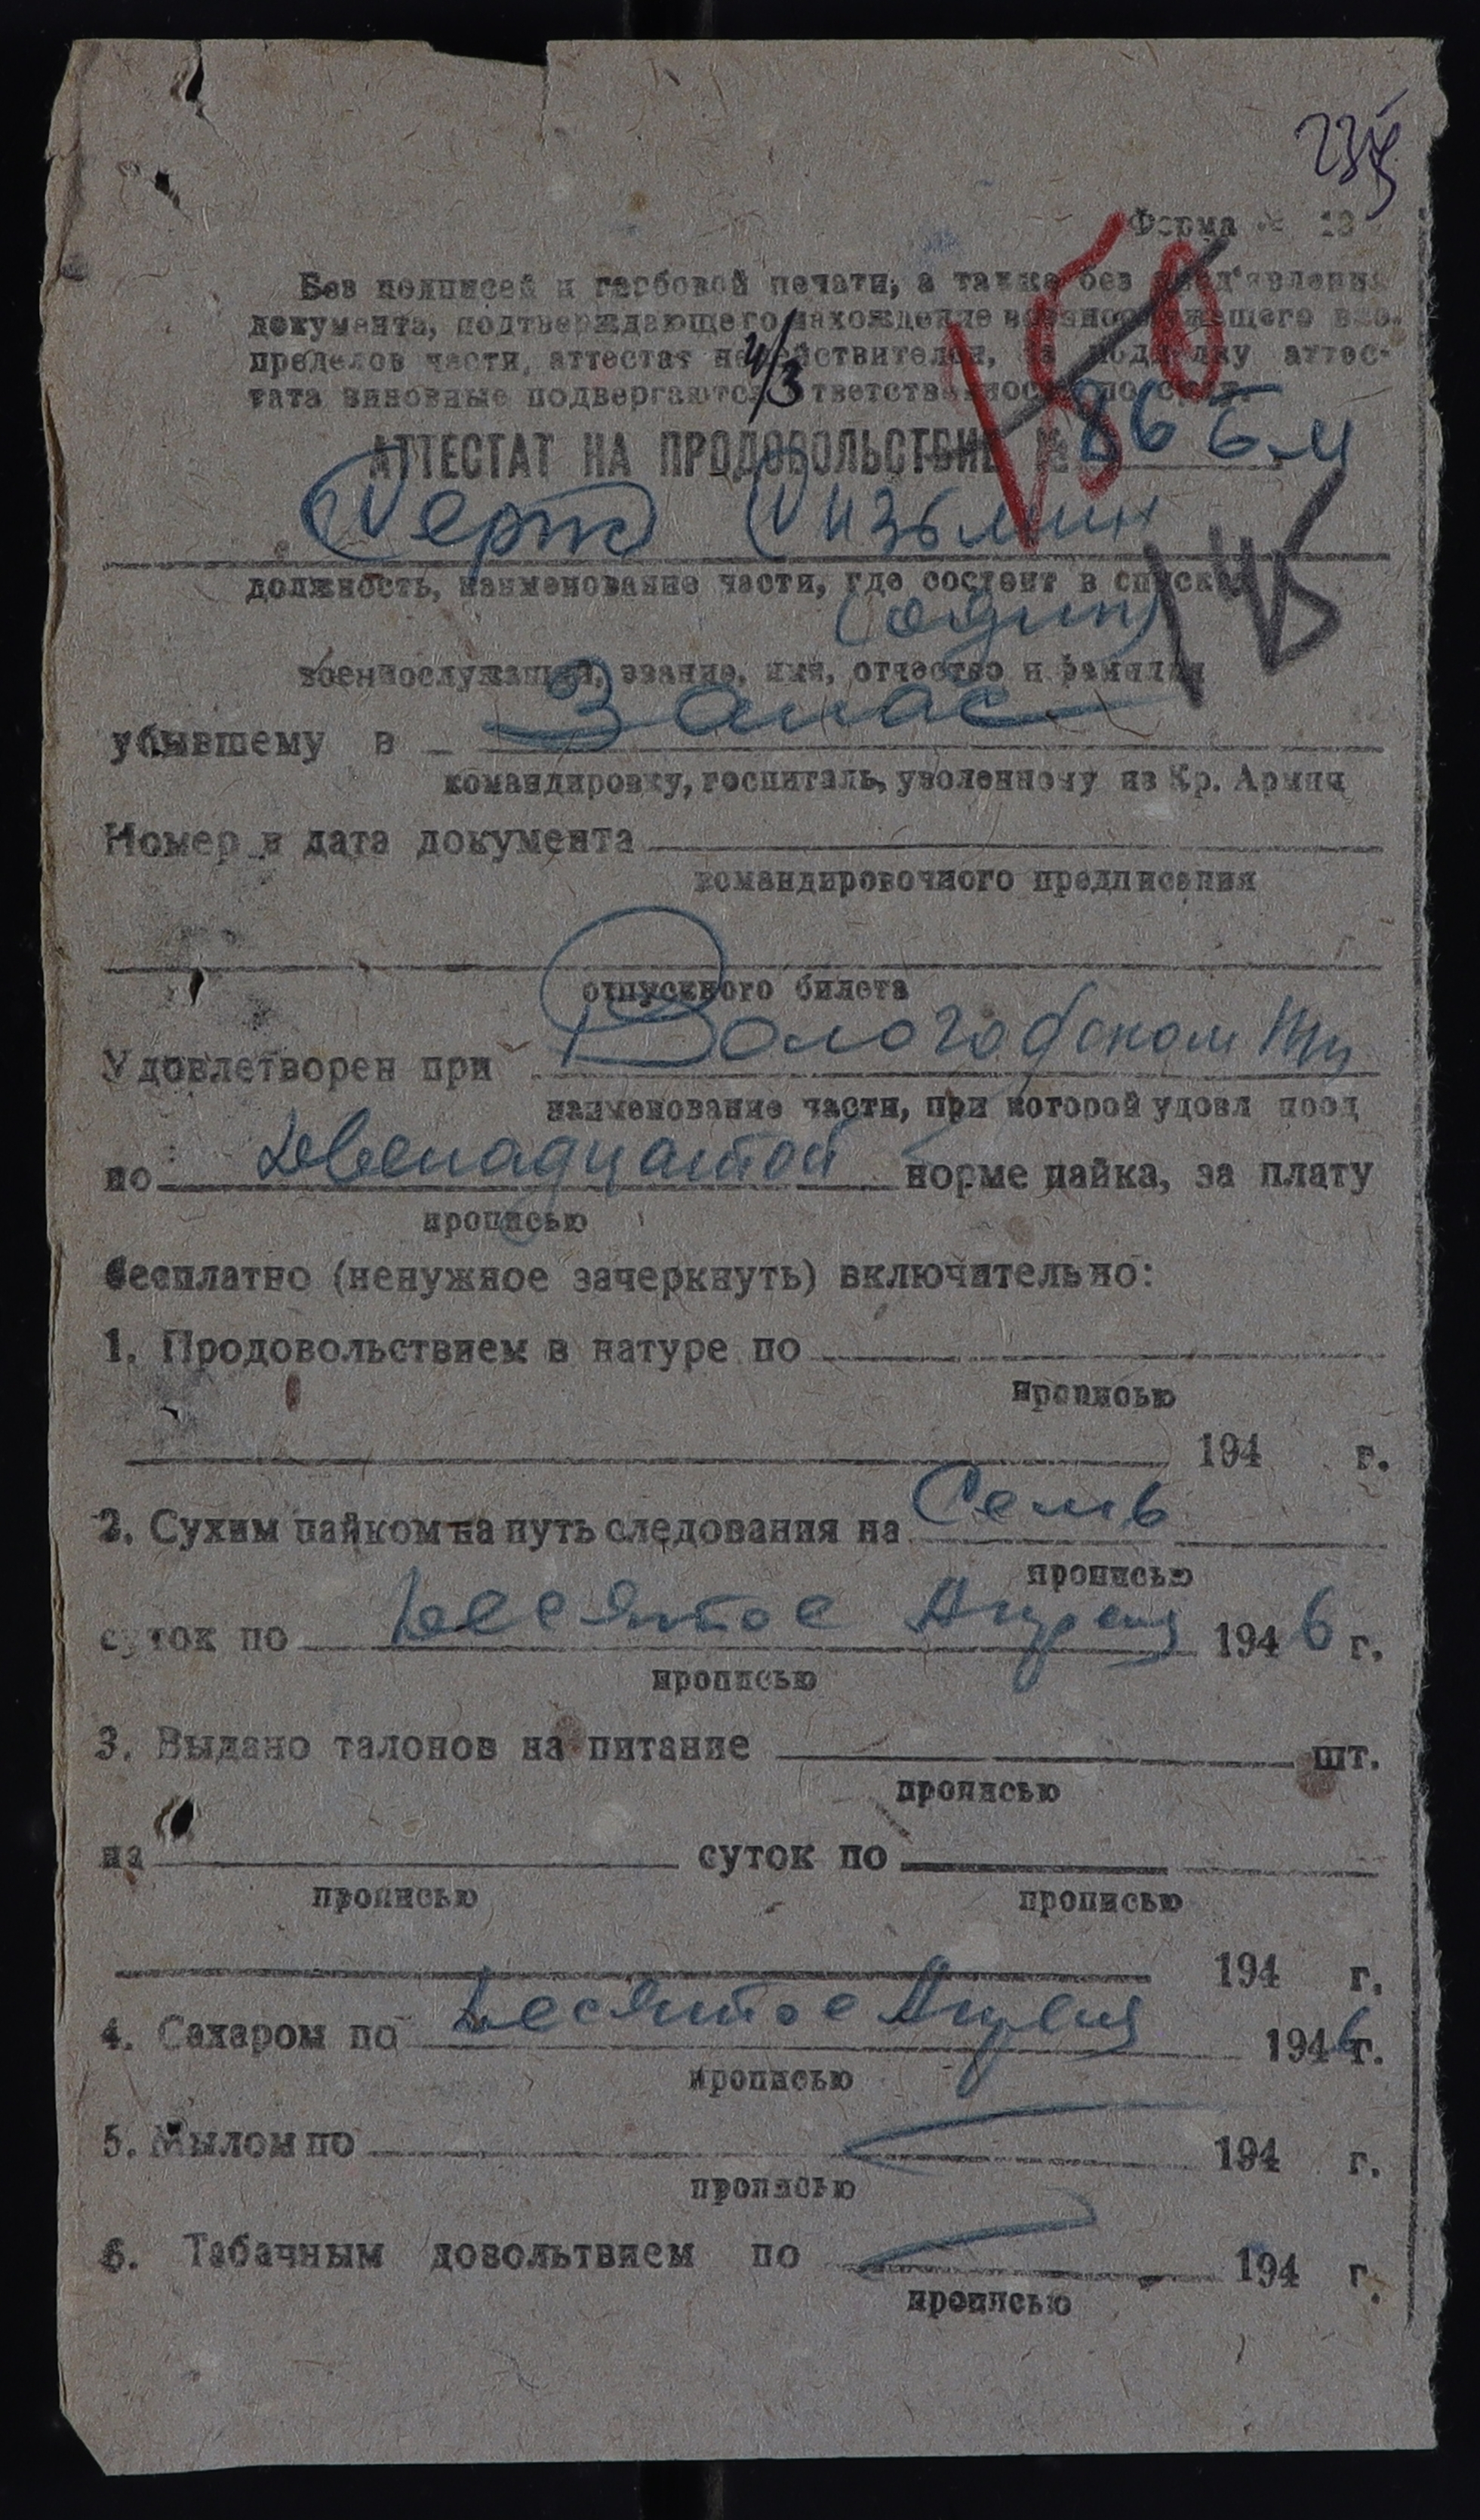 Форма № 13
Без подписей и гербовой печати, а также без пред'явления
документа, подтверждающего нахождение военнослужащего вне
пределов части, аттестат недействителен, за подделку аттес-
тата виновные подвергаются ответственности по суду.
4/3
АТТЕСТАТ НА ПРОДОВОЛЬСТВИЕ №
Серж
должность, наименование части, где состоит в списках
(один)
военнослужащий, звание, имя, отчество и фамилия
убывшему в Запас
командировку, госпиталь, уволенному из Кр. Армии
Номер и дата документа
командировочного предписания
отпускного билета
Удовлетворен при Вологодском
наименование части, при которой удовл прод
по двенадцатой норме пайка, за плату
прописью
бесплатно (ненужное зачеркнуть) включительно:
1. Продовольствием в натуре по
прописью
194 г.
2. Сухим пайком на путь следования на Семь
прописью
суток по Десятое Апреля 1946 г.
прописью
3. Выдано талонов на питание шт.
прописью
на суток по
прописью прописью
194 г.
4. Сахаром по Десятое Апреля 1946 г.
прописью
5. Мылом по 194 г.
прописью
6. Табачным довольтвием по 194 г.
прописью